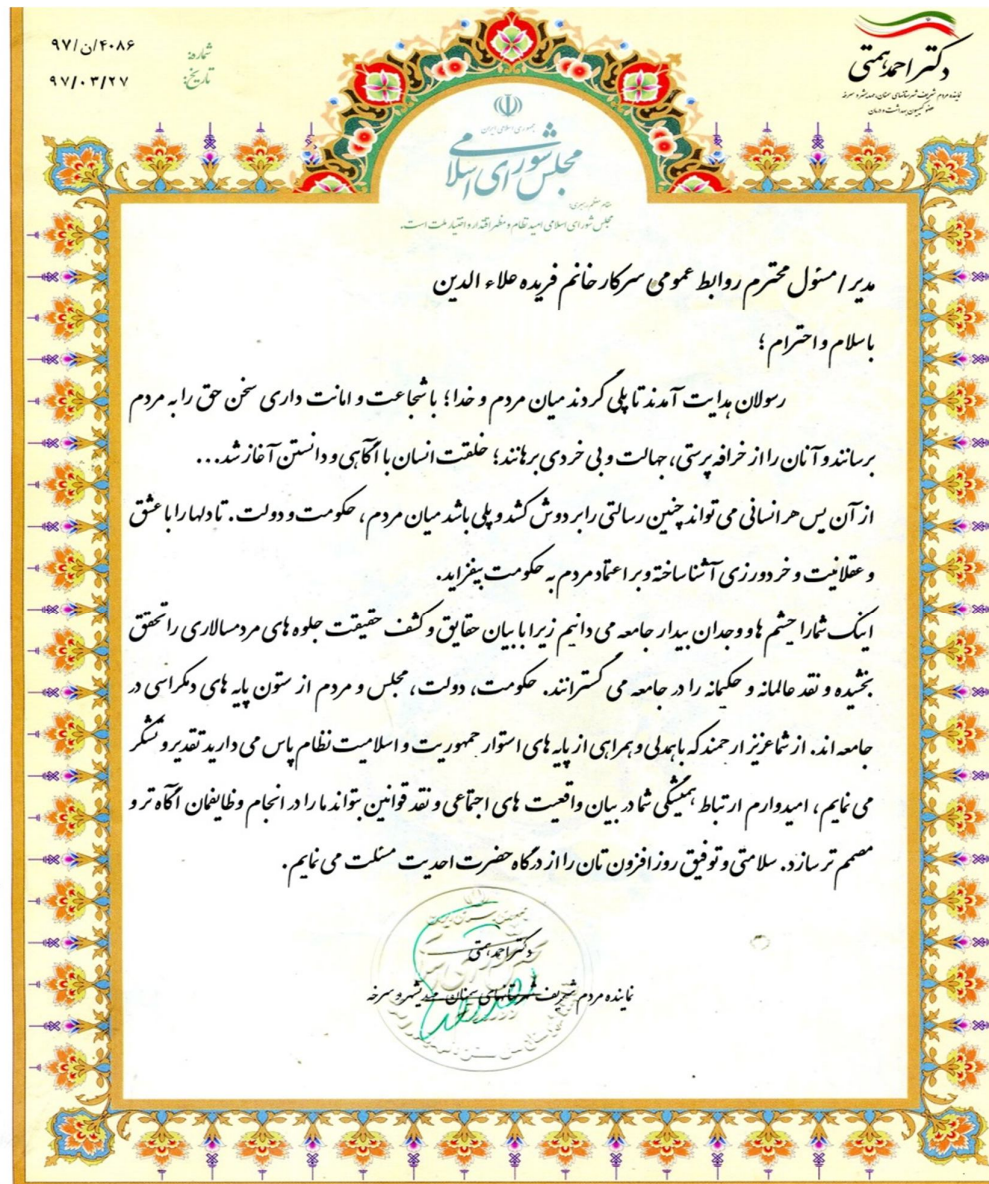 ۹۷/ن/۴۰۸۶
شماره:
۹۷/۰۳/۲۷
تاریخ:
دکتر احمد همتی
نماینده مردم شریف شهرستانهای سمنان، مهدیشهر و سرخه
عضو کمیسیون بهداشت و درمان
جمهوری اسلامی ایران
مجلس شورای اسلامی
مقام معظم رهبری:
مجلس شورای اسلامی امید نظام و مظهر اقتدار و اختیار ملت است.
مدیر / مسئول محترم روابط عمومی سرکار خانم فریده علاء الدین
با سلام و احترام ؛
رسولان هدایت آمدند تا پلی گردند میان مردم و خدا؛ با شجاعت و امانت داری سخن حق را به مردم
برسانند و آنان را از خرافه پرستی، جهالت و بی خردی برهانند؛ خلقت انسان با آگاهی و دانستن آغاز شد...
از آن پس هر انسانی می تواند چنین رسالتی را بر دوش کشد و پلی باشد میان مردم، حکومت و دولت. تا دلها را با عشق
و عقلانیت و خردورزی آشنا ساخته و بر اعتماد مردم به حکومت بیفزاید.
اینک شما را چشم ها و وجدان بیدار جامعه می دانیم زیرا با بیان حقایق و کشف حقیقت جلوه های مردمسالاری را تحقق
بخشیده و نقد عالمانه و حکیمانه را در جامعه می گسترانند. حکومت، دولت، مجلس و مردم از ستون پایه های دمکراسی در
جامعه اند. از شما عزیز ارجمند که با همدلی و همراهی از پایه های استوار جمهوریت و اسلامیت نظام پاس می دارید تقدیر و تشکر
می نمایم، امیدوارم ارتباط همیشگی شما در بیان واقعیت های اجتماعی و نقد قوانین بتواند ما را در انجام وظایفمان آگاه تر و
مصمم تر سازد. سلامتی و توفیق روز افزون تان را از درگاه حضرت احدیت مسئلت می نمایم.
دکتر احمد همتی
نماینده مردم شریف شهرستانهای سمنان مهدیشهر و سرخه